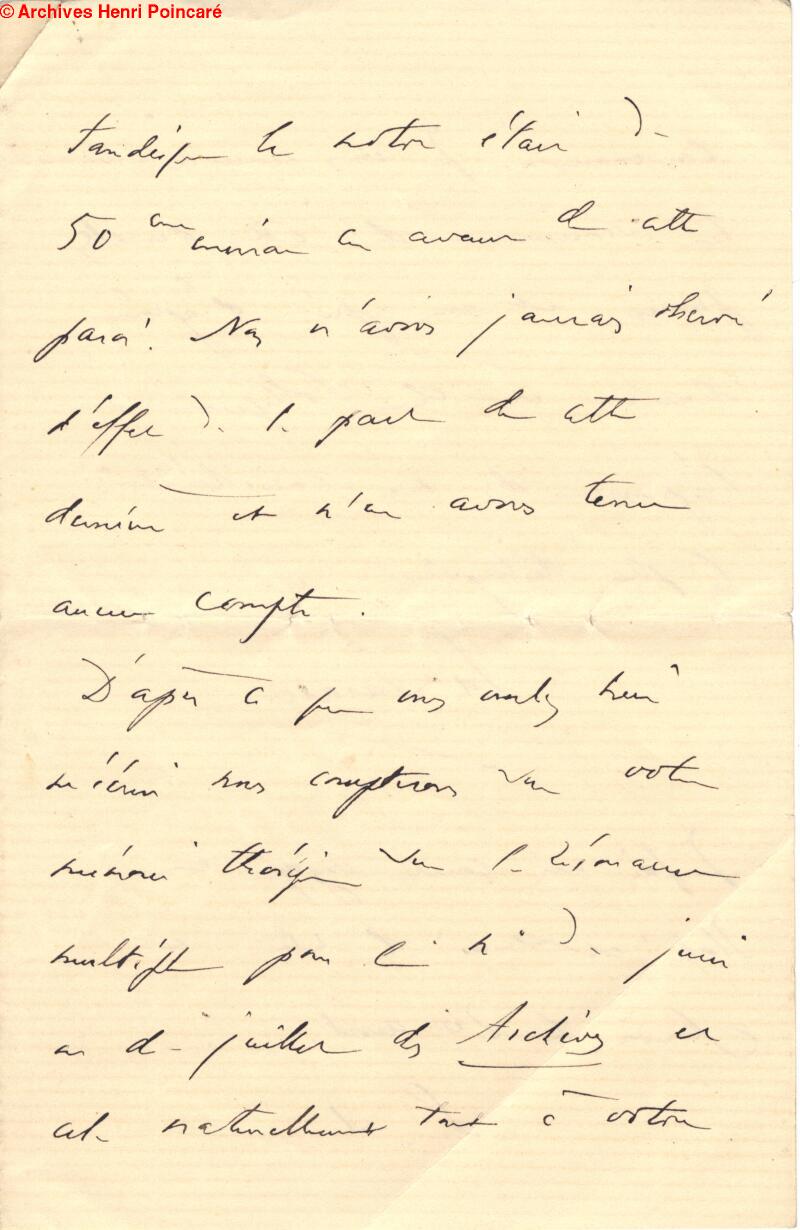 © Archives Henri Poincaré
tandis que le nôtre était à
50 cm environ en avant de cette
paroi. Nous n'avions jamais observé
d'effet de la part de cette
dernière et n'en avons tenu
aucun compte.
D'après ce que vous voulez bien
m'écrire nous comptons sur votre
mémoire théorique sur la résonance
multiple pour le n° de juin
ou de juillet des Archives et
cela naturellement tout à votre